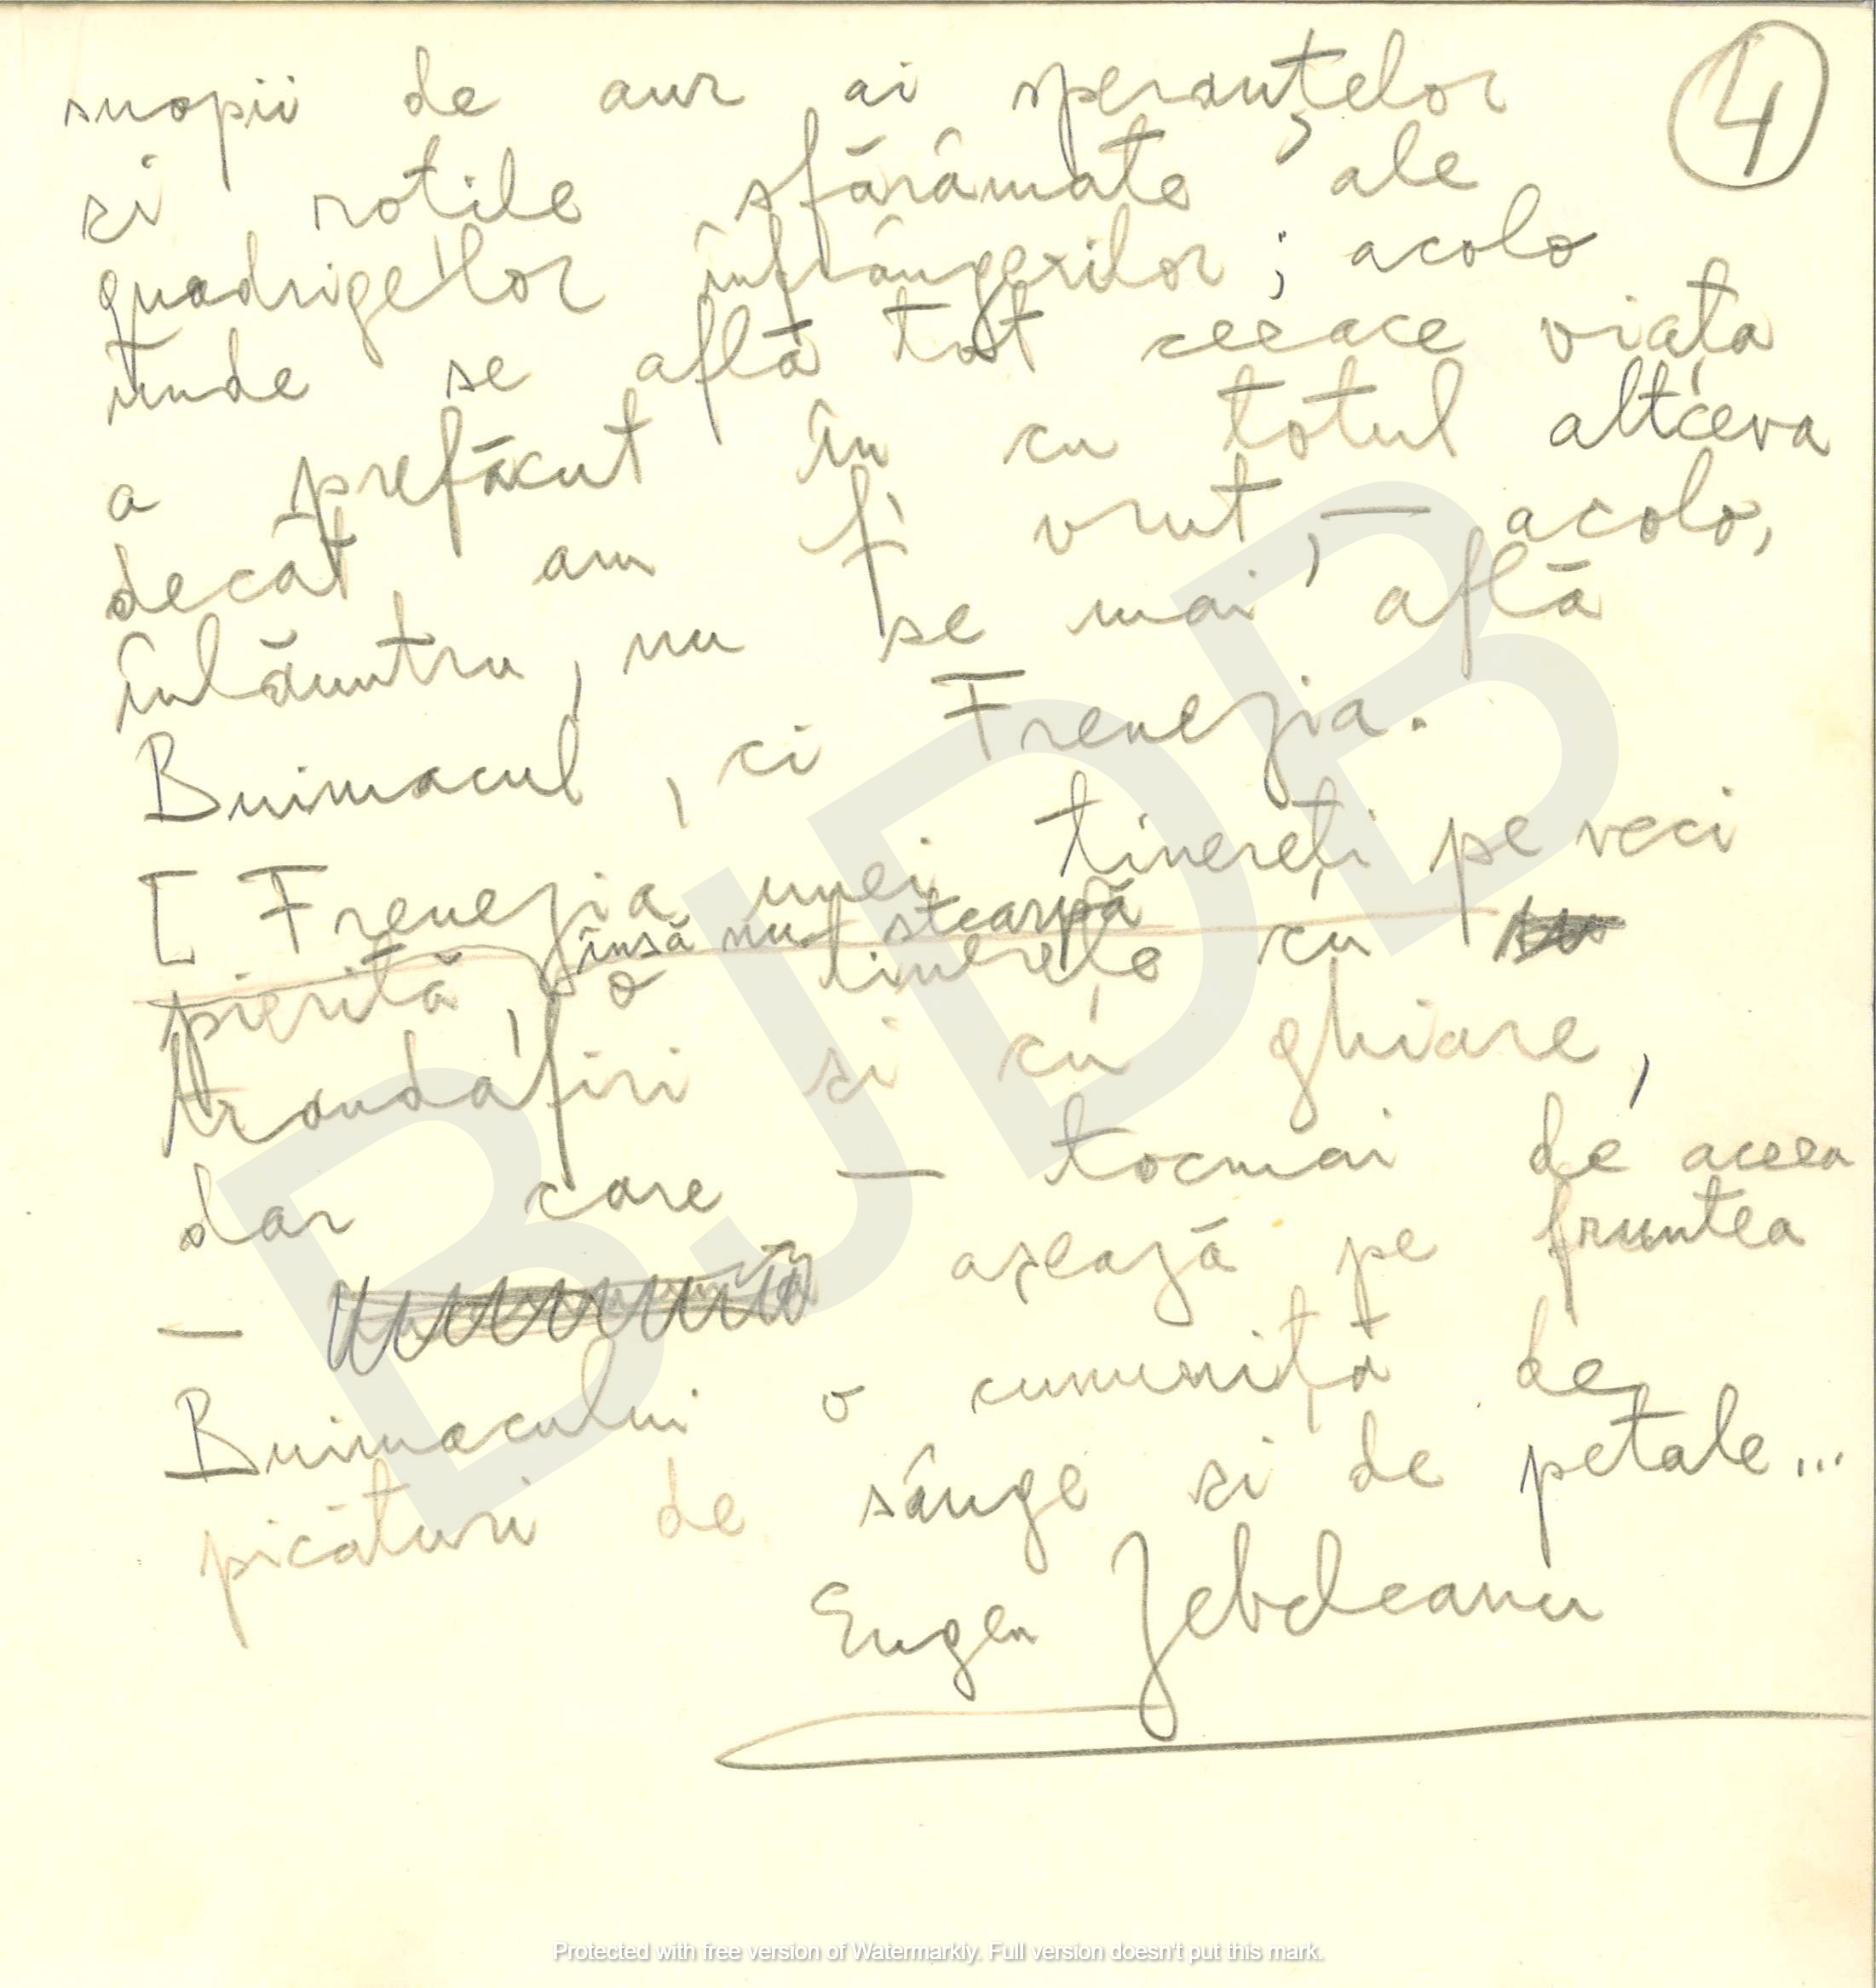 4
snopii de aur ai speranțelor
și roțile sfărâmate ale
quadrigelor înfrângerilor; acolo
unde se află tot ceeace viața
a prefăcut în cu totul altceva
decât am fi vrut, — acolo,
înlăuntru, nu se mai află
Buimacul, ci Frenezia.
[ Frenezia unei tinereți pe veci
însă nu stearpă
pierită, o tinerețe cu
trandafiri și cu ghiare,
dar care — tocmai de aceea
— așează pe fruntea
Buimacului o cununiță de
picături de sânge și de petale...
Eugen Jebeleanu
BJDB
Protected with free version of Watermarkly. Full version doesn't put this mark.